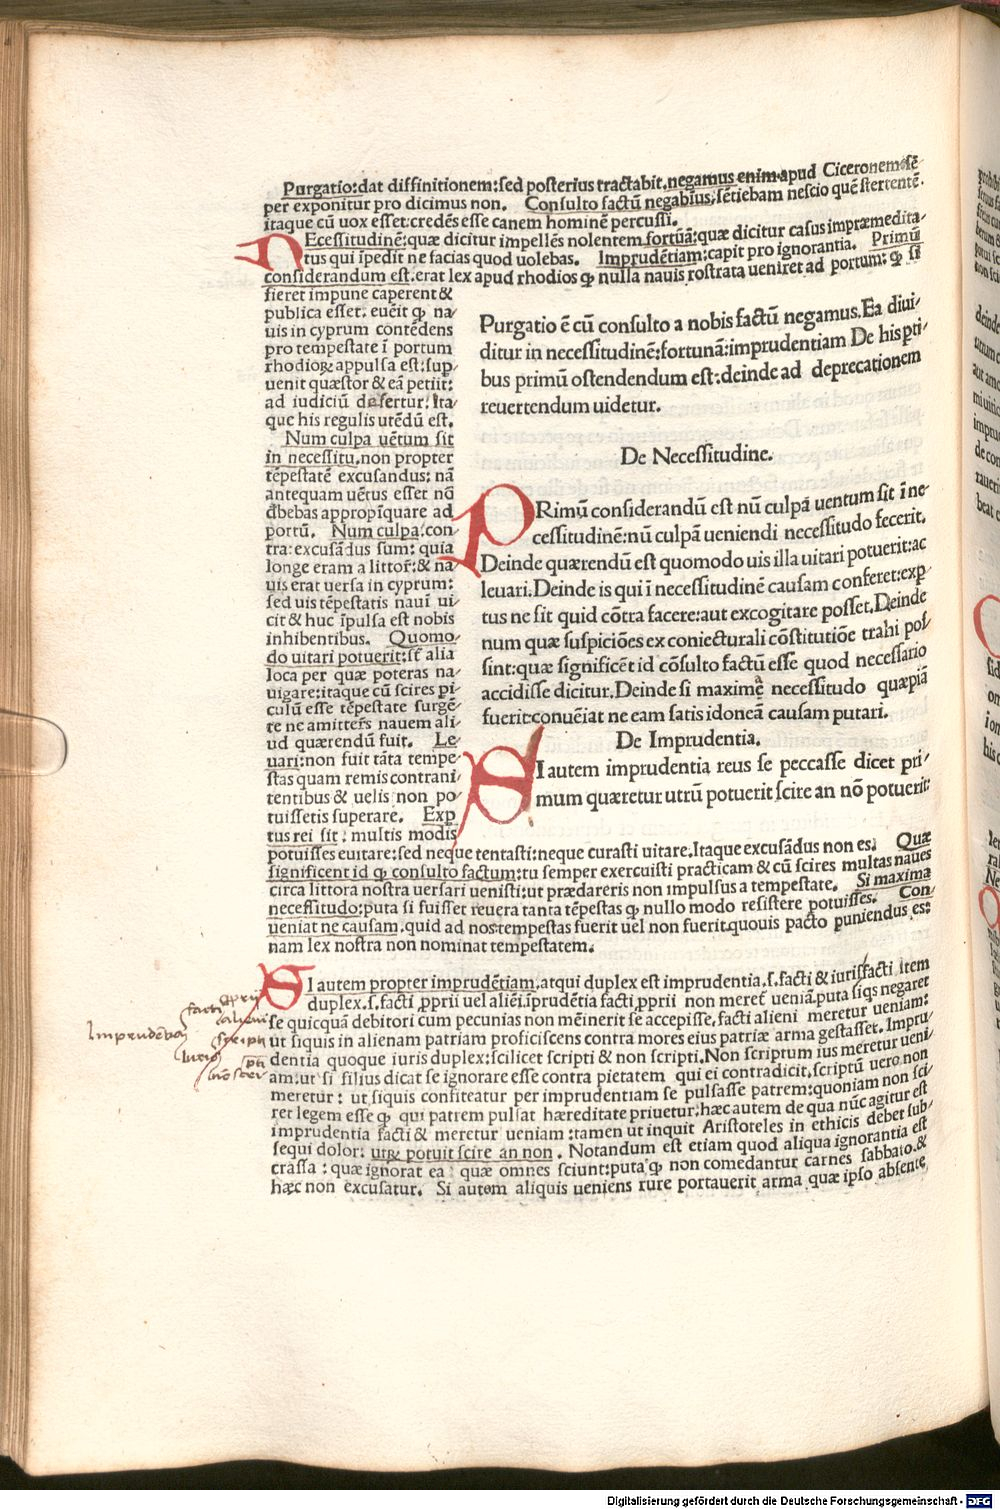 Purgatio:dat diffinitionem:sed posterius tractabit.negamus enim apud Ciceronem sē
per exponitur pro dicimus non. Consulto factū negabius:sētiebam nescio quē stertentē.
itaque cū uox esset:credēs esse canem hominē percussi.
NEcessitudinē:quæ dicitur impellēs nolentem fortūā:quæ dicitur casus impræmedita
tus qui īpedit ne facias quod uolebas. Imprudētiam:capit pro ignorantia. Primū
considerandum est.erat lex apud rhodios ꝙ nulla nauis rostrata ueniret ad portum: ꝙ si
fieret impune caperent &
publica esset. euēit ꝙ na
uis in cyprum contēdens
pro tempestate ī portum
rhodioꝝ appulsa est:sup
uenit quæstor & eā petiit:
ad iudiciū desertur. Ita
que his regulis utēdū est.
Num culpa uētum sit
in necessitu.non propter
tēpestatē excusandus: nā
antequam uētus esset nō
dbebas appropīquare ad
portū. Num culpa.con
tra:excusādus sum: quia
longe eram a littor: & na
uis erat uersa in cyprum:
sed uis tēpestatis nauī ui
cit & huc īpulsa est nobis
inhibentibus. Quomo
do uitari potuerit:sē alia
loca per quæ poteras na
uigare:itaque cū scires pi
culū esse tēpestate surgē
te ne amitters nauem ali
ud quærendū fuit. Le
uari:non fuit tāta tempe
stas quam remis contrani
tentibus & uelis non po
tuissetis superare. Exp
tus rei sit : multis modis
potuisses euitare:sed neque tentasti:neque curasti uitare.Itaque excusādus non es. Quæ
significent id ꝙ consulto factum:tu semper exercuisti practicam & cū scires multas naues
circa littora nostra uersari uenisti:ut prædareris non impulsus a tempestate. Si maxima
necessitudo:puta si fuisset reuera tanta tēpestas ꝙ nullo modo resistere potuisses. Con
ueniat ne causam.quid ad nos:tempestas fuerit uel non fuerit.quouis pacto puniendus es:
nam lex nostra non nominat tempestatem.
Purgatio ē cū consulto a nobis factū negamus.Ea diui
ditur in necessitudinē:fortunā:imprudentiam De his pti
bus primū ostendendum est:deinde ad deprecationem
reuertendum uidetur.
De Necessitudine.
PRimū considerandū est nū culpā uentum sit ī ne
cessitudinē:nū culpā ueniendi necessitudo fecerit.
Deinde quærendū est quomodo uis illa uitari potuerit:ac
leuari.Deinde is qui ī necessitudinē causam conferet:exp
tus ne sit quid cōtra facere:aut excogitare posset.Deinde
num quæ suspiciōes ex coniecturali cōstitutiōe trahi pos
sint:quæ significēt id cōsulto factū esse quod necessario
accidisse dicitur.Deinde si maxime necessitudo quæpiā
fuerit:conuēiat ne eam satis idoneā causam putari.
De Imprudentia.
SI autem imprudentia reus se peccasse dicet pri
mum quæretur utrū potuerit scire an nō potuerit:
SI autem propter imprudētiam.atqui duplex est imprudentia.s.facti & iuris facti item
duplex.s.facti ꝓprii uel aliēi.īprudētia facti ꝓprii non meret ueniā.puta siqs negaret
se quicquā debitori cum pecunias non mēinerit se accepisse.facti alieni meretur ueniam:
ut siquis in alienam patriam proficiscens contra mores eius patriæ arma gestasset. Impru
dentia quoque iuris duplex:scilicet scripti & non scripti.Non scriptum ius meretur ueni
am:ut si filius dicat se ignorare esse contra pietatem qui ei contradicit.scriptū uero non
meretur : ut siquis confiteatur per imprudentiam se pulsasse patrem:quoniam non sci
ret legem esse ꝙ qui patrem pulsat hæreditate priuetur:hæc autem de qua nūc agitur est
imprudentia facti & meretur ueniam :tamen ut inquit Aristoteles in ethicis debet sub
sequi dolor: utꝝ potuit scire an non . Notandum est etiam quod aliqua ignorantia est
crassa : quæ ignorat ea quæ omnes sciunt:puta ꝙ non comedantur carnes sabbato.&
hæc non excusatur. Si autem aliquis ueniens rure portauerit arma quæ ipso absente
Imprudētia
facti
ꝓprii
alieni
iuris
scripti
nō scri
pti
Digitalisierung gefördert durch die Deutsche Forschungsgemeinschaft - DFG